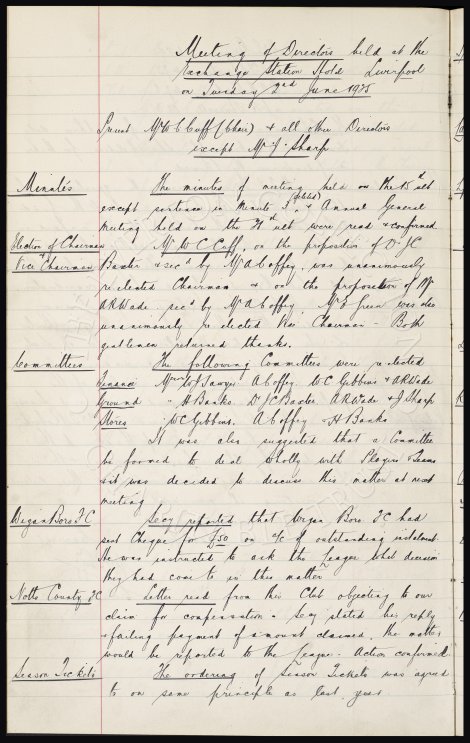 Meeting of Directors held at the
Exchange Station Hotel Liverpool
on Tuesday 2nd June 1925
Present Mr W C Cuff (Chair) & all other Directors
except Mr J Sharp
Minutes
The minutes of meeting held on the ult
except sentence in Minute & Annual General
Meeting held on the ult were read & confirmed
Election of Chairman
Vice Chairman
Mr W C Cuff, on the proposition of Dr J C
Baxter & secd by Mr A Coffey, was unanimously
re-elected Chairman & on the proposition of Mr
A R Wade secd by Mr A Coffey, Mr E Green was also
unanimously re-elected Vice Chairman - Both
gentlemen returned thanks.
Committees
The following Committees were re-elected
Finance Messrs W J Sawyer A Coffey W C Gibbins & A R Wade
Ground " H Banks Dr J C Baxter A R Wade & J Sharp
Stores " W C Gibbins. A Coffey & H Banks
It was also suggested that a Committee
be formed to deal wholly with Players & Teams
& it was decided to discuss this matter at next
meeting
Wigan Boro F C
Secy reported that Wigan Boro F C had
sent Cheque for £50 on a/c of outstanding instalment.
He was instructed to ask the League what decision
they had come to in this matter
Notts County F C
Letter read from this Club objecting to our
claim for compensation & Secy stated his reply
& failing payment of amount claimed, the matter
would be reported to the League - Action confirmed.
Season Tickets
The ordering of Season Tickets was agreed
to on same principle as last year